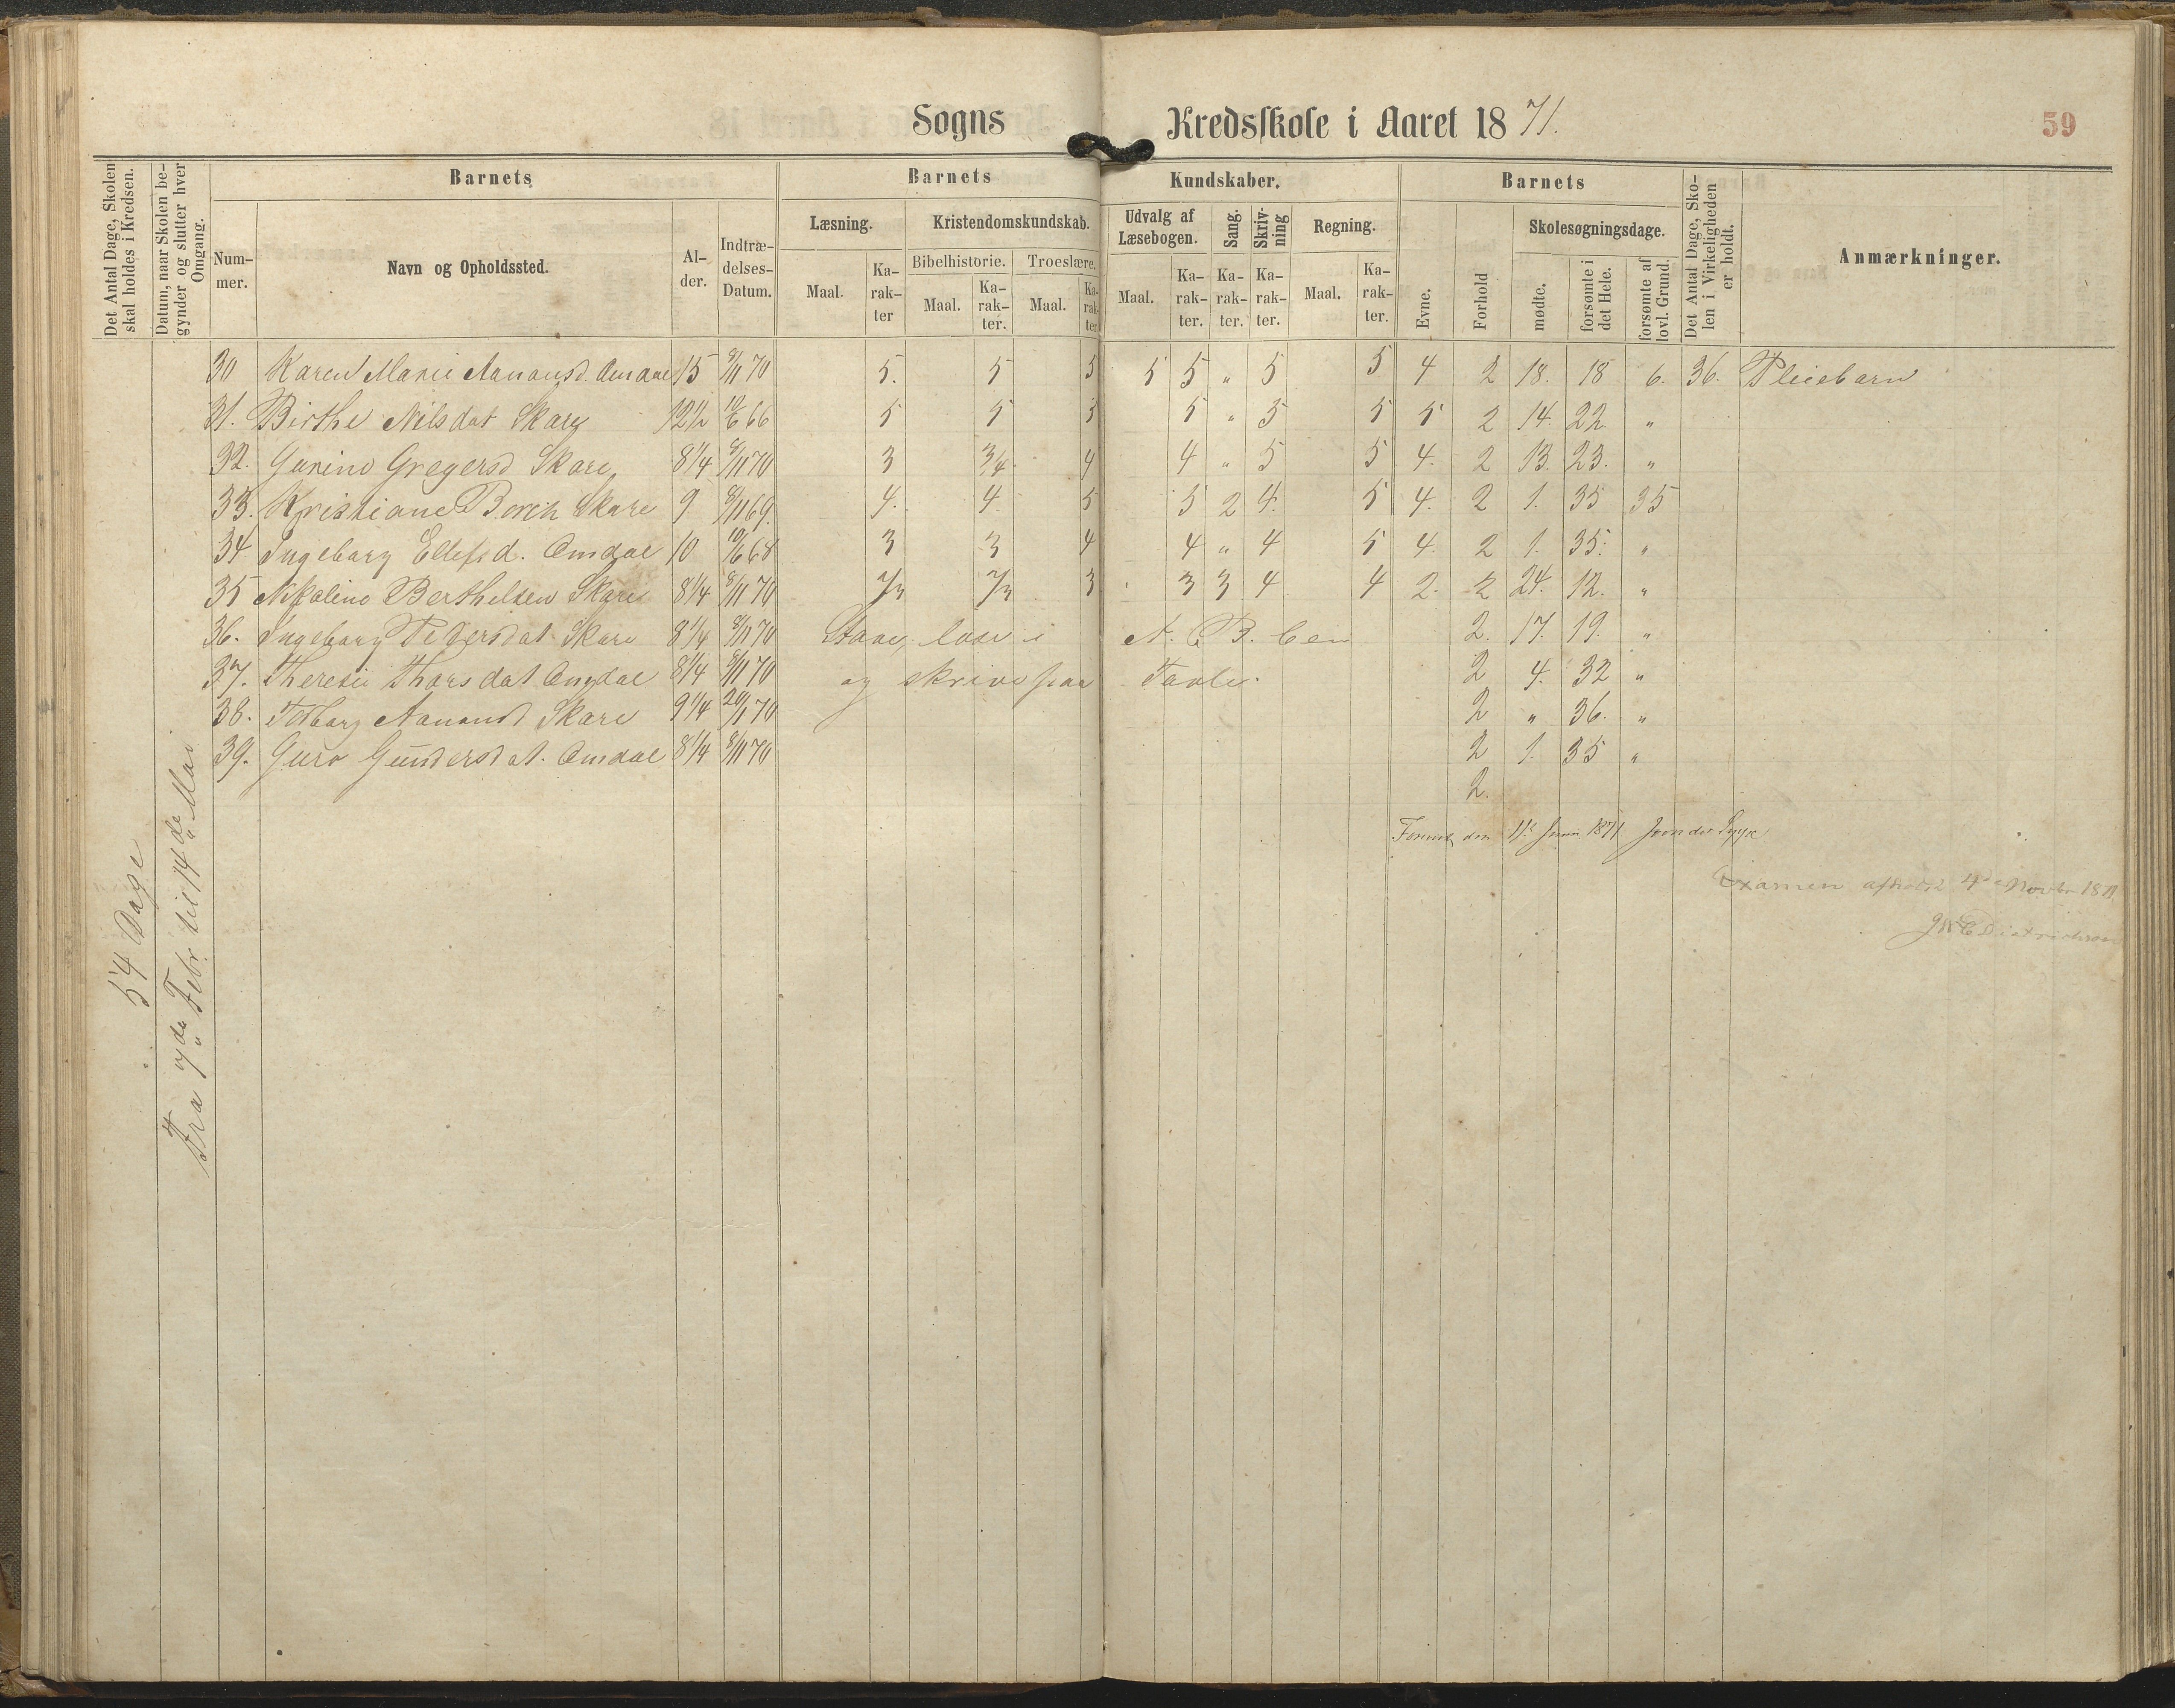 Sogns Kredsskole i Aaret 1871.
59
Det Antal Dage, Skolen skal holdes i Kredsen.
Datum, naar Skolen begynder og slutter hver Omgang.
Barnets
Barnets
Kundskaber.
Barnets
Det Antal Dage, Skolen i Virkeligheden er holdt.
Anmærkninger.
Nummer.
Navn og Opholdssted.
Alder.
Indtrædelses-Datum.
Læsning.
Kristendomskundskab.
Udvalg af Læsebogen.
Sang.
Skrivning
Regning.
Evne.
Forhold
Skolesøgningsdage.
Bibelhistorie.
Troeslære.
Maal. Karakter Maal. Karakter. Maal. Karakter Maal. Karakter. Karakter. Karakter. Maal. Karakter.
mødte.
forsømte i det Hele.
forsømte af lovl. Grund.
54 Dage
Fra 7de Febr. til 14de Mai
30 Karen Marie Aanonsd. Omdal 15 8/11 70 5. 5 5 5 5 " 5 5 4 2 18. 18 6. 36. Pleiebarn
31. Birthe Nilsdat Skare 12½ 10/6 66 5 5 5 5 " 5 5 5 2 14. 22. "
32. Gurine Gregersd Skare 8¼ 8/11 70 3 3/4 4 4 " 5 5 4. 2 13. 23. "
33. Kristiane Borch Skare 9 8/11 69. 4. 4 5 5 2 4. 5 4. 2 1. 35 35
34 Ingeborg Ellefsd. Omdal 10 10/6 68 3 3 4 4 " 4 5 4. 2 1. 35. "
35 Berthelsen Skare 8¼ 8/11 70 2/3 2/3 3 3 3 4 4 2. 2 24. 12. "
36. Ingeborg Pedersdat Skare 8¼ 8/11 70 Staar, læse i A. B. Cen 2. 17. 19. "
37. Theresie Thorsdat Omdal 8¼ 8/11 70 og skrive paa Tavle. 2 4. 32 "
38. Aanonsd Skare 9¼ 20/1 70 2 " 36. "
39. Guro Gundersdat. Omdal 8¼ 8/11 70 2 1. 35 "
2.
den 11te Juni 1871
Examen afholdt 4de Novbr 1871
Dietrichson